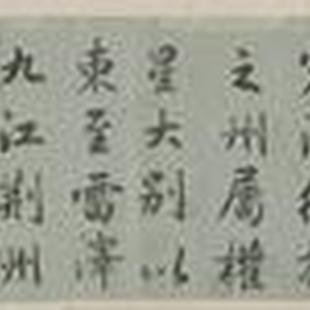 之州屬權
星大別以
東至雷澤
九江荊州